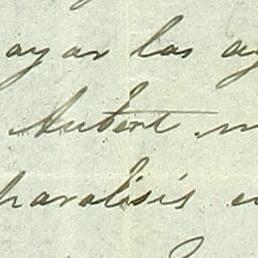 ayar las
Aubert
paralisis